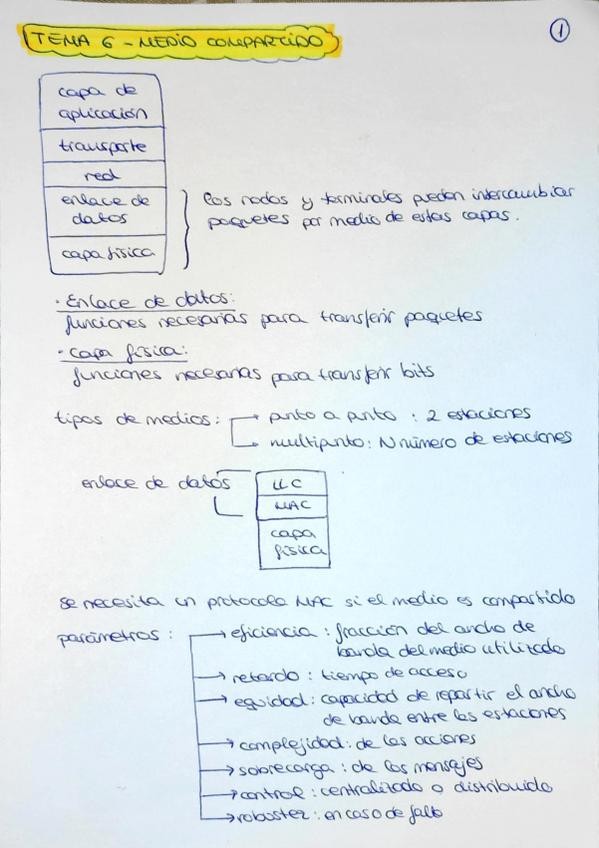 TEMA 6 - MEDIO COMPARTIDO
1
capa de
aplicación
transporte
red
enlace de
datos
capa física
los nodos y terminales pueden intercambiar
paquetes por medio de estas capas.
· Enlace de datos:
funciones necesarias para transferir paquetes
· capa física:
funciones necesarias para transferir bits
tipos de medios: → punto a punto : 2 estaciones
→ multipunto: N número de estaciones
enlace de datos
LLC
MAC
capa
física
se necesita un protocolo MAC si el medio es compartido
parámetros : → eficiencia : fracción del ancho de
banda del medio utilizado
→ retardo : tiempo de acceso
→ equidad: capacidad de repartir el ancho
de banda entre las estaciones
→ complejidad: de las acciones
→ sobrecarga : de los mensajes
→ control : centralizado o distribuido
→ robustez : en caso de fallo